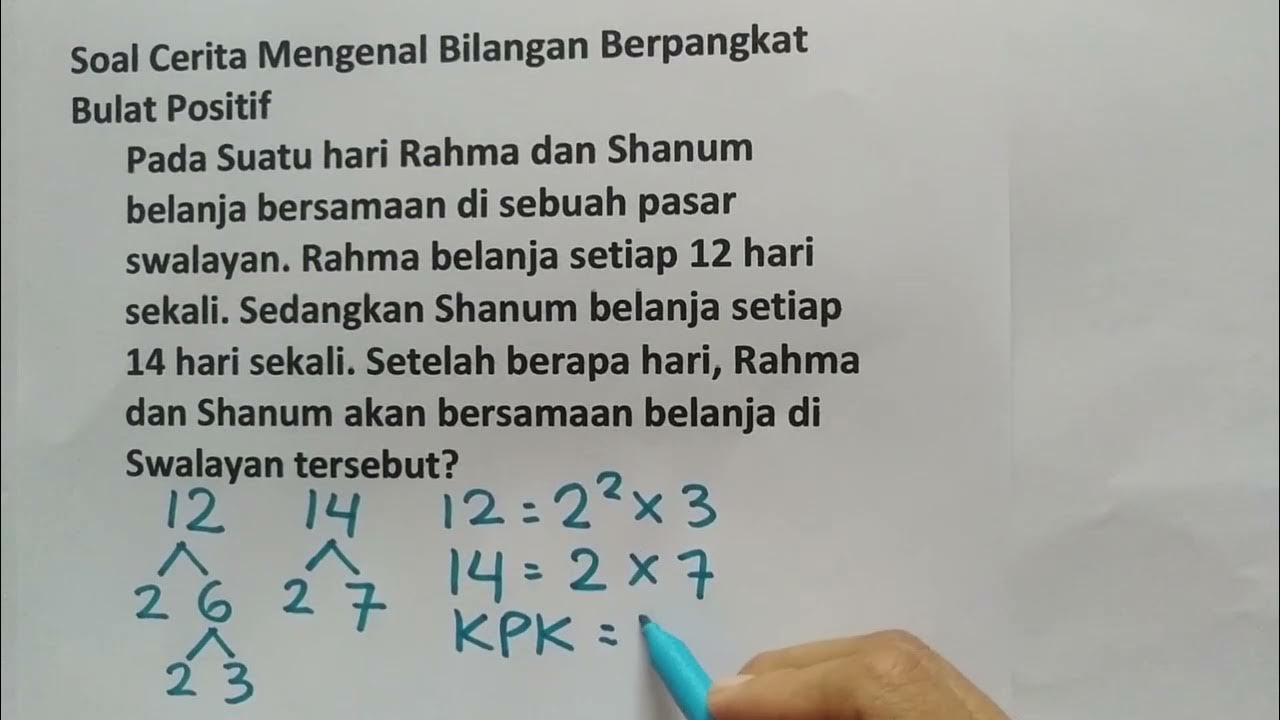 Soal Cerita Mengenal Bilangan Berpangkat
Bulat Positif
Pada Suatu hari Rahma dan Shanum
belanja bersamaan di sebuah pasar
swalayan. Rahma belanja setiap 12 hari
sekali. Sedangkan Shanum belanja setiap
14 hari sekali. Setelah berapa hari, Rahma
dan Shanum akan bersamaan belanja di
Swalayan tersebut?
12 14 12 = 2² × 3
2 6 2 7 14 = 2 × 7
2 3 KPK =